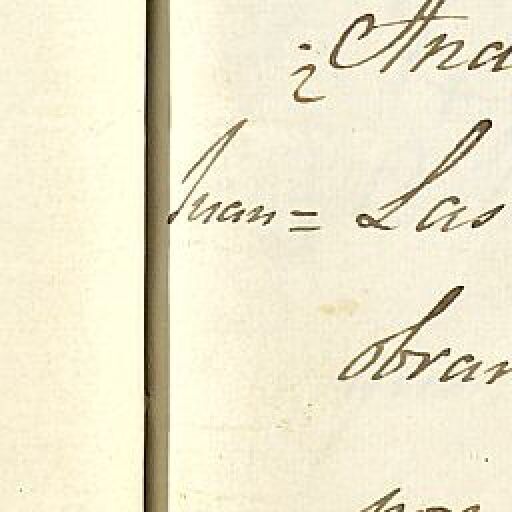 ¿Ana
Juan = Las
obran